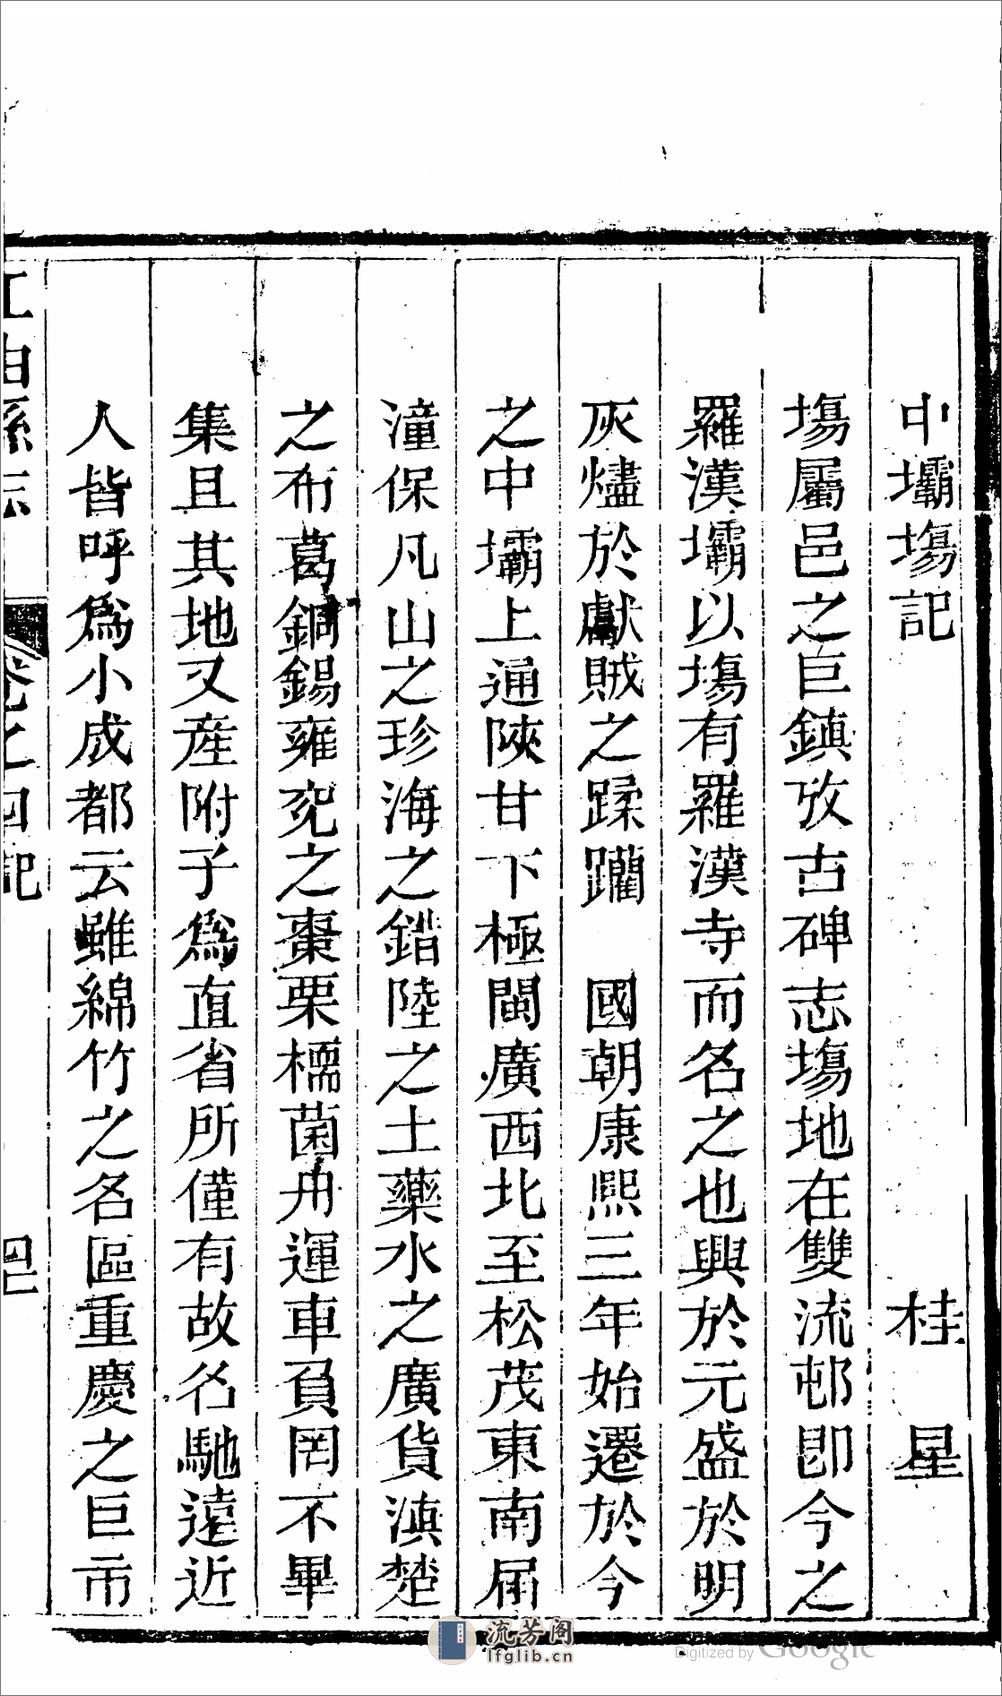 中壩塲記 桂 星
塲屬邑之巨鎮攷古碑志塲地在雙流邨卽今之
羅漢壩以塲有羅漢寺而名之也興於元盛於明
灰燼於獻賊之蹂躪 國朝康熙三年始遷於今
之中壩上通陝甘下極閩廣西北至松茂東南届
潼保凡山之珍海之錯陸之土藥水之廣貨滇楚
之布葛銅錫雍兖之棗栗檽菌舟運車負罔不畢
集且其地又産附子爲直省所僅有故名馳遠近
人皆呼爲小成都云雖綿竹之名區重慶之巨市
江油縣志 卷之四記 四
流芳阁
lfglib.cn
Digitized by Google